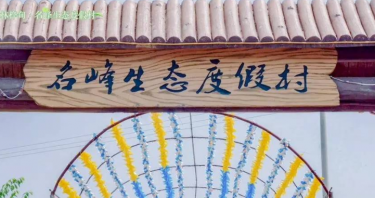 名峰生态度假村